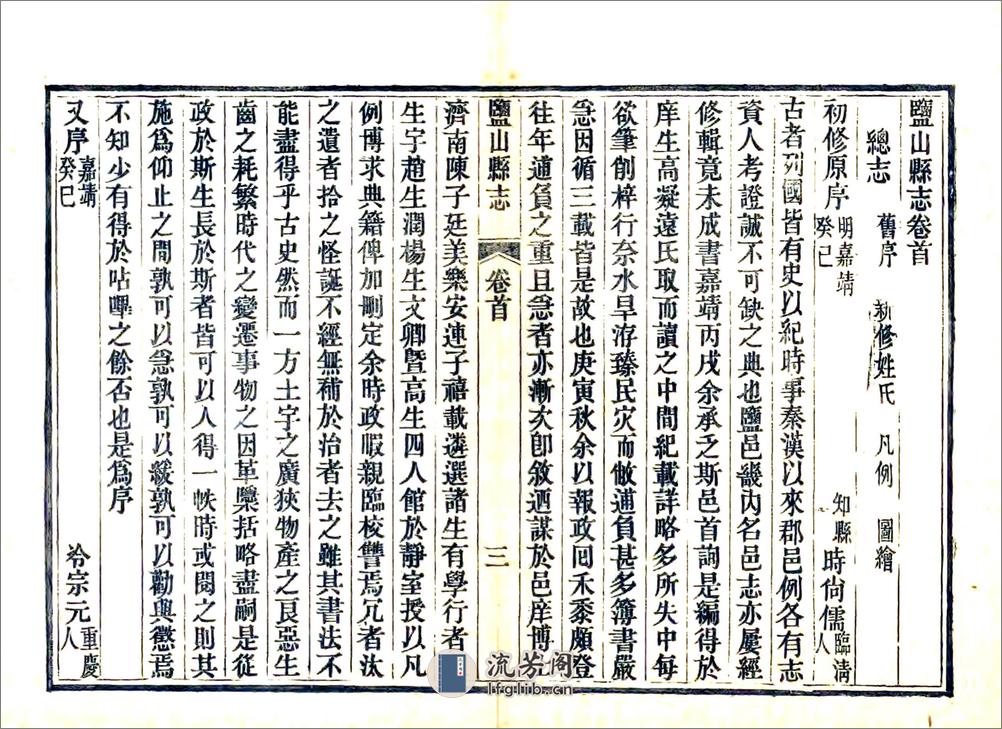 鹽山縣志卷首
總志　舊序　新修姓氏　凡例　圖繪
初修原序　明嘉靖癸巳　知縣時尚儒臨清人
古者列國皆有史以紀時事秦漢以來郡邑例各有志
資人考證誠不可缺之典也鹽邑畿內名邑志亦屢經
修輯竟未成書嘉靖丙戌余承乏斯邑首詢是編得於
庠生高凝遠氏取而讀之中間紀載詳略多所失中每
欲筆削梓行奈水旱洊臻民灾而敝逋負甚多簿書嚴
急因循三載皆是故也庚寅秋余以報政回禾黍頗登
往年逋負之重且急者亦漸次卽敘迺謀於邑庠博
鹽山縣志　卷首　三
濟南陳子廷美樂安連子禧載遴選諸生有學行者
生宇趙生潤楊生文卿暨高生四人館於靜室授以凡
例博求典籍俾加刪定余時政暇親臨校讐焉冗者汰
之遺者拾之怪誕不經無補於治者去之雖其書法不
能盡得乎古史然而一方土宇之廣狹物產之良惡生
齒之耗繁時代之變遷事物之因革櫽括略盡嗣是從
政於斯生長於斯者皆可以人得一帙時或閱之則其
施爲仰止之間孰可以急孰可以緩孰可以勸興懲焉
不知少有得於呫嗶之餘否也是爲序
又序　嘉靖癸巳　泠宗元重慶人
流芳阁
lfglib.cn